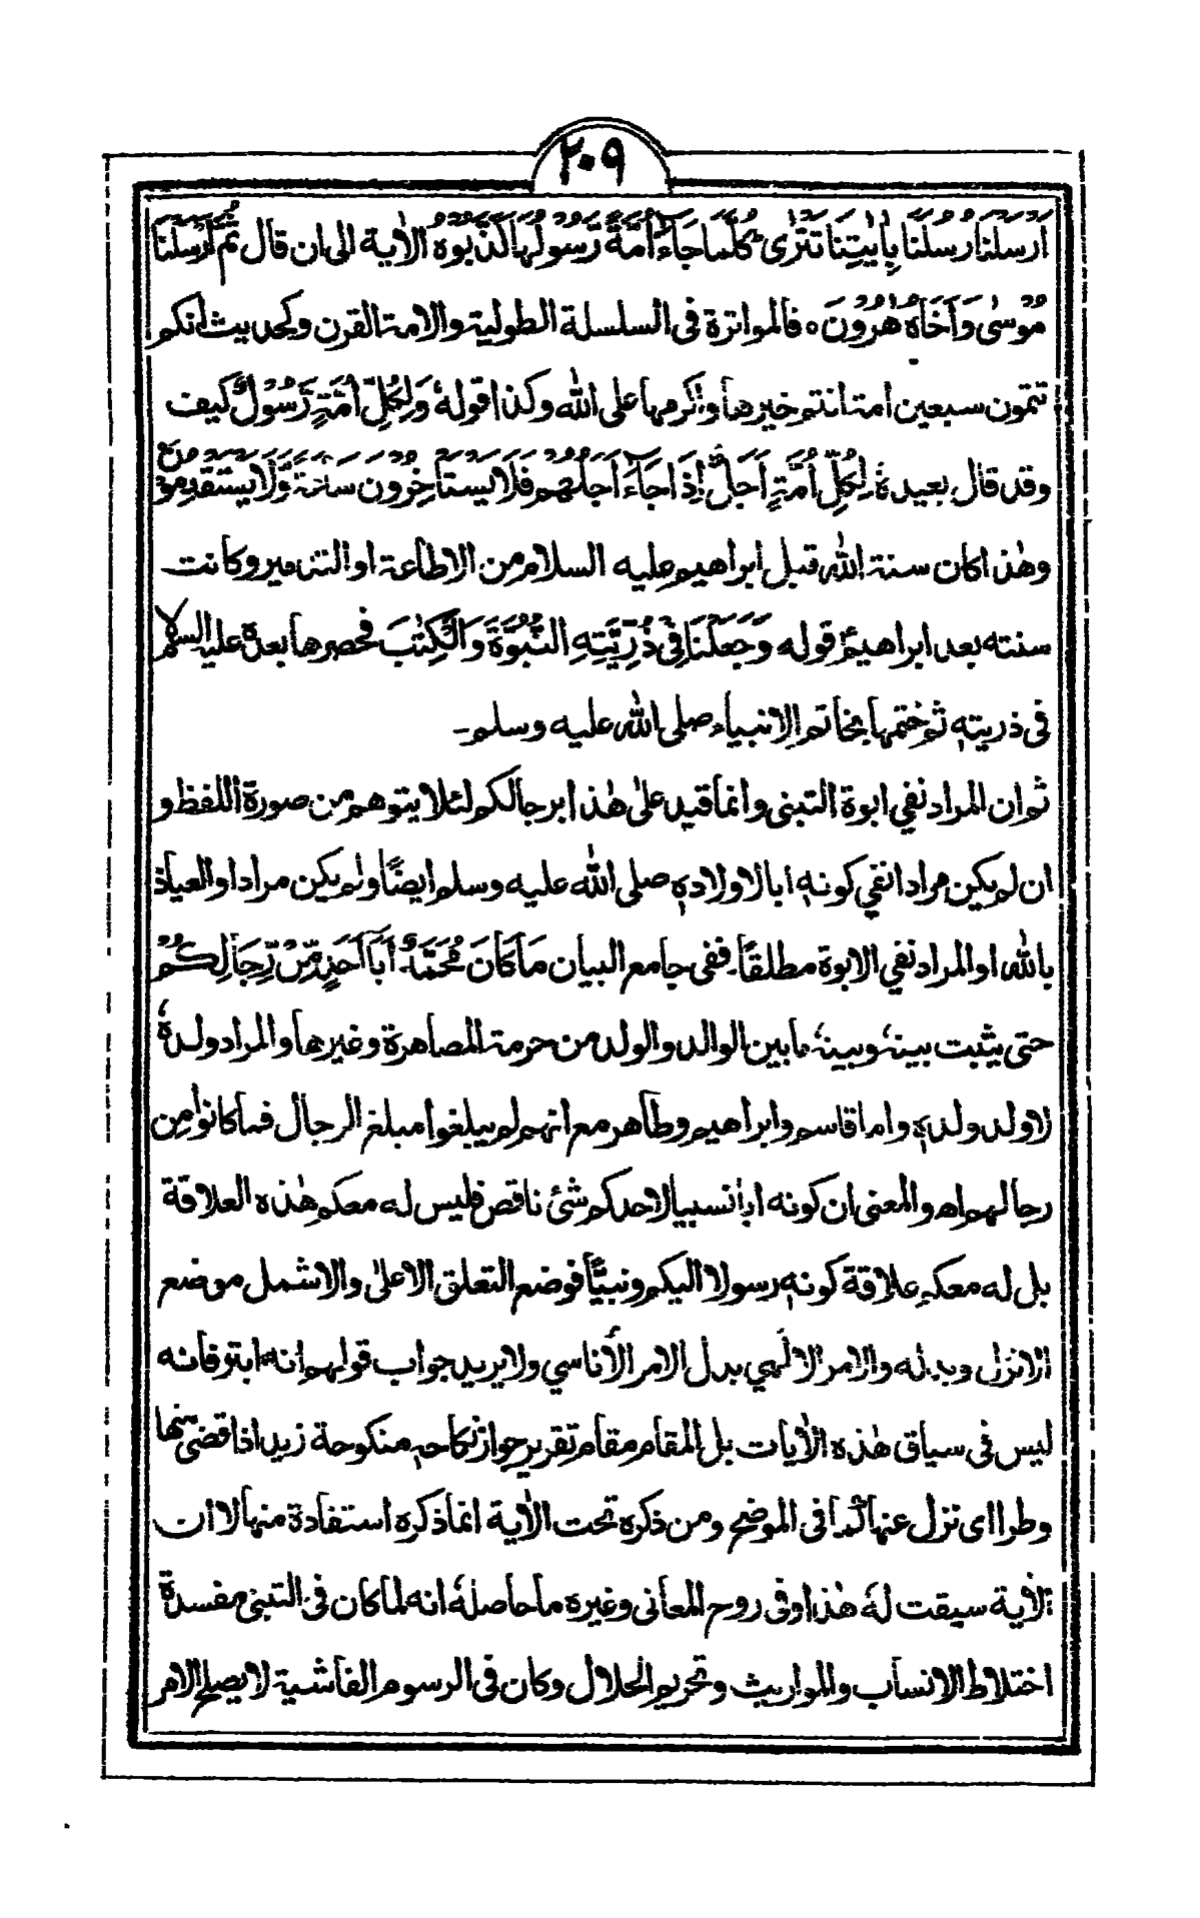 ٢٠٩
اَرْسَلْنَا رُسُلَنَا بِاٰيٰتِنَا تَتْرٰى كُلَّمَا جَآءَ اُمَّةً رَّسُوْلُهَا كَذَّبُوْهُ الاٰية الى ان قال ثُمَّ اَرْسَلْنَا
مُوْسٰى وَاَخَاهُ هٰرُوْنَ ٥ فالمواترة فى السلسلة الطولية والامة القرن وكحديث انكم
تتمون سبعين امة انتم خيرها واكرمها على الله وكذا قولهٗ وَلِكُلِّ اُمَّةٍ رَّسُوْلٌ كيف
وقد قال بعيدهٗ لِكُلِّ اُمَّةٍ اَجَلٌ اِذَا جَآءَ اَجَلُهُمْ فَلَا يَسْتَاْخِرُوْنَ سَاعَةً وَّلَا يَسْتَقْدِمُوْنَ
وهٰذا كان سنة الله قبل ابراهيم عليه السلام من الاطاعة او التدمير وكانت
سنته بعد ابراهيمؑ قوله وَجَعَلْنَا فِىْ ذُرِّيَّتِهِ النُّبُوَّةَ وَالْكِتٰبَ فحصرها بعدهٗ عليه السلام
فى ذريتهٖ ثم ختمها بخاتم الانبياء صلى الله عليه وسلم ۔
ثم ان المراد نفي ابوة التبنى وانما قيد علىٰ هٰذا برجالكم لئلا يتوهم من صورة اللفظ و
ان لم يكن مرادا نفي كونهٖ ابا لاولادهٖ صلى الله عليه وسلم ايضًا ولم يكن مرادا والعياذ
بالله او المراد نفي الابوة مطلقًا۔ ففى جامع البيان مَا كَانَ مُحَمَّدٌ اَبَآ اَحَدٍ مِّنْ رِّجَالِكُمْ
حتى يثبت بينهٗ وبينهٗ ما بين الوالد والولد من حرمة المصاهرة وغيرها والمراد ولدهٗ
لا ولد ولدهٖ واما قاسم وابراهيم وطاهر مع انهم لم يبلغوا مبلغ الرجال فما كانوا من
رجالهم اھ والمعنى ان كونه ابًا نسبيا لاحدكم شئ ناقص فليس له معكم هٰذه العلاقة
بل له معكم علاقة كونهٖ رسولا اليكم ونبيًّا فوضع التعلق الاعلىٰ والاشمل موضع
الانزل وبدله والامر الالٰهي بدل الامر الأناسي ولا يريد جواب قولهم انه ابتر فانه
ليس فى سياق هٰذه الاٰيات بل المقام مقام تقرير جواز نكاحهٖ منكوحة زيد اذا قضىٰ منها
وطرا اى نزل عنها كما فى الموضح ومن ذكره تحت الاٰية انما ذكره استفادة منها لا ان
الاٰية سيقت لهٗ هٰذا وفى روح المعانى وغيره ما حاصلهٗ انه لما كان فى التبنى مفسدة
اختلاط الانساب والمواريث وتحريم الحلال وكان فى الرسوم الفاشية لا يصلح الامر